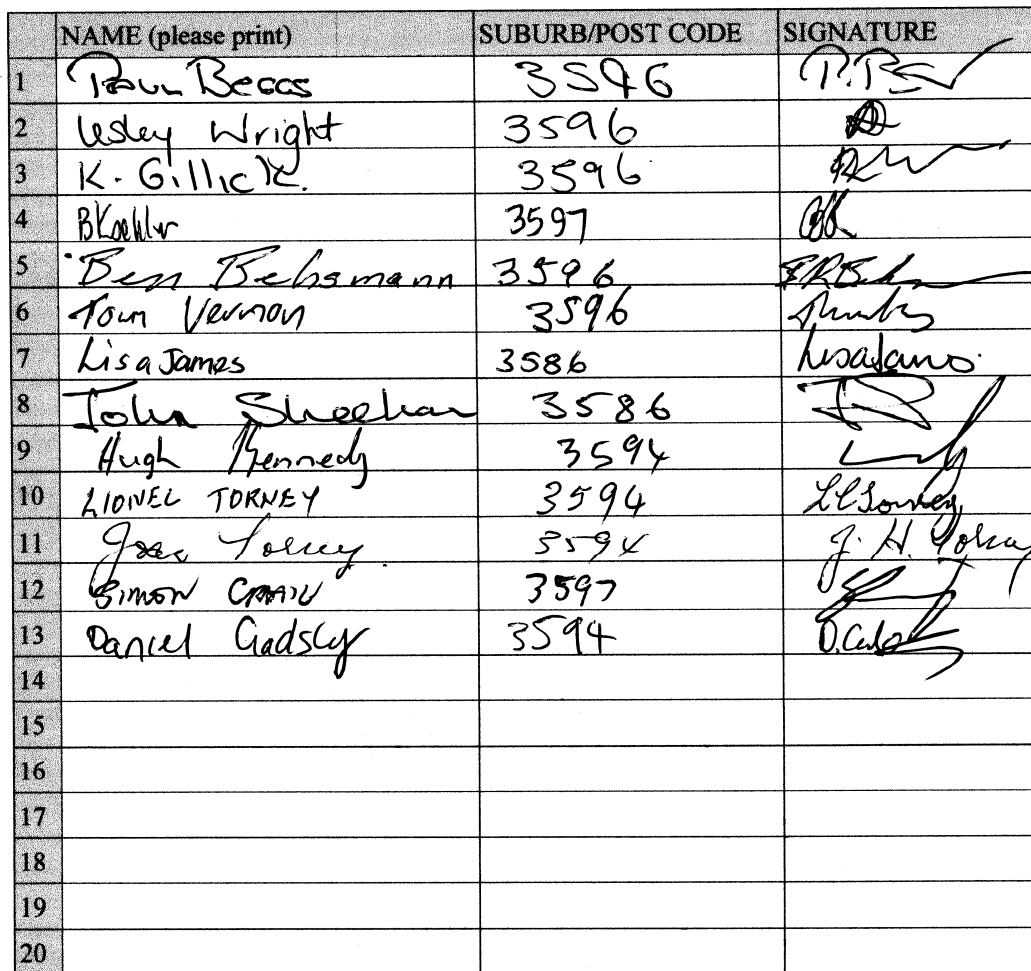 NAME (please print) SUBURB/POST CODE SIGNATURE
1 Paul Beggs 3596 P.
2 Lesley Wright 3596
3 K. Gillick. 3596
4 B Koehler 3597
5 Ben Behsmann 3596
6 Tom Vernon 3596
7 Lisa James 3586 Lisa James.
8 John Sheehan 3586
9 Hugh Kennedy 3594
10 LIONEL TORNEY 3594 L C Torney
11 Torney 3594 J. H. Torney
12 SIMON CRAIL 3597
13 Daniel Gadsby 3594
14
15
16
17
18
19
20